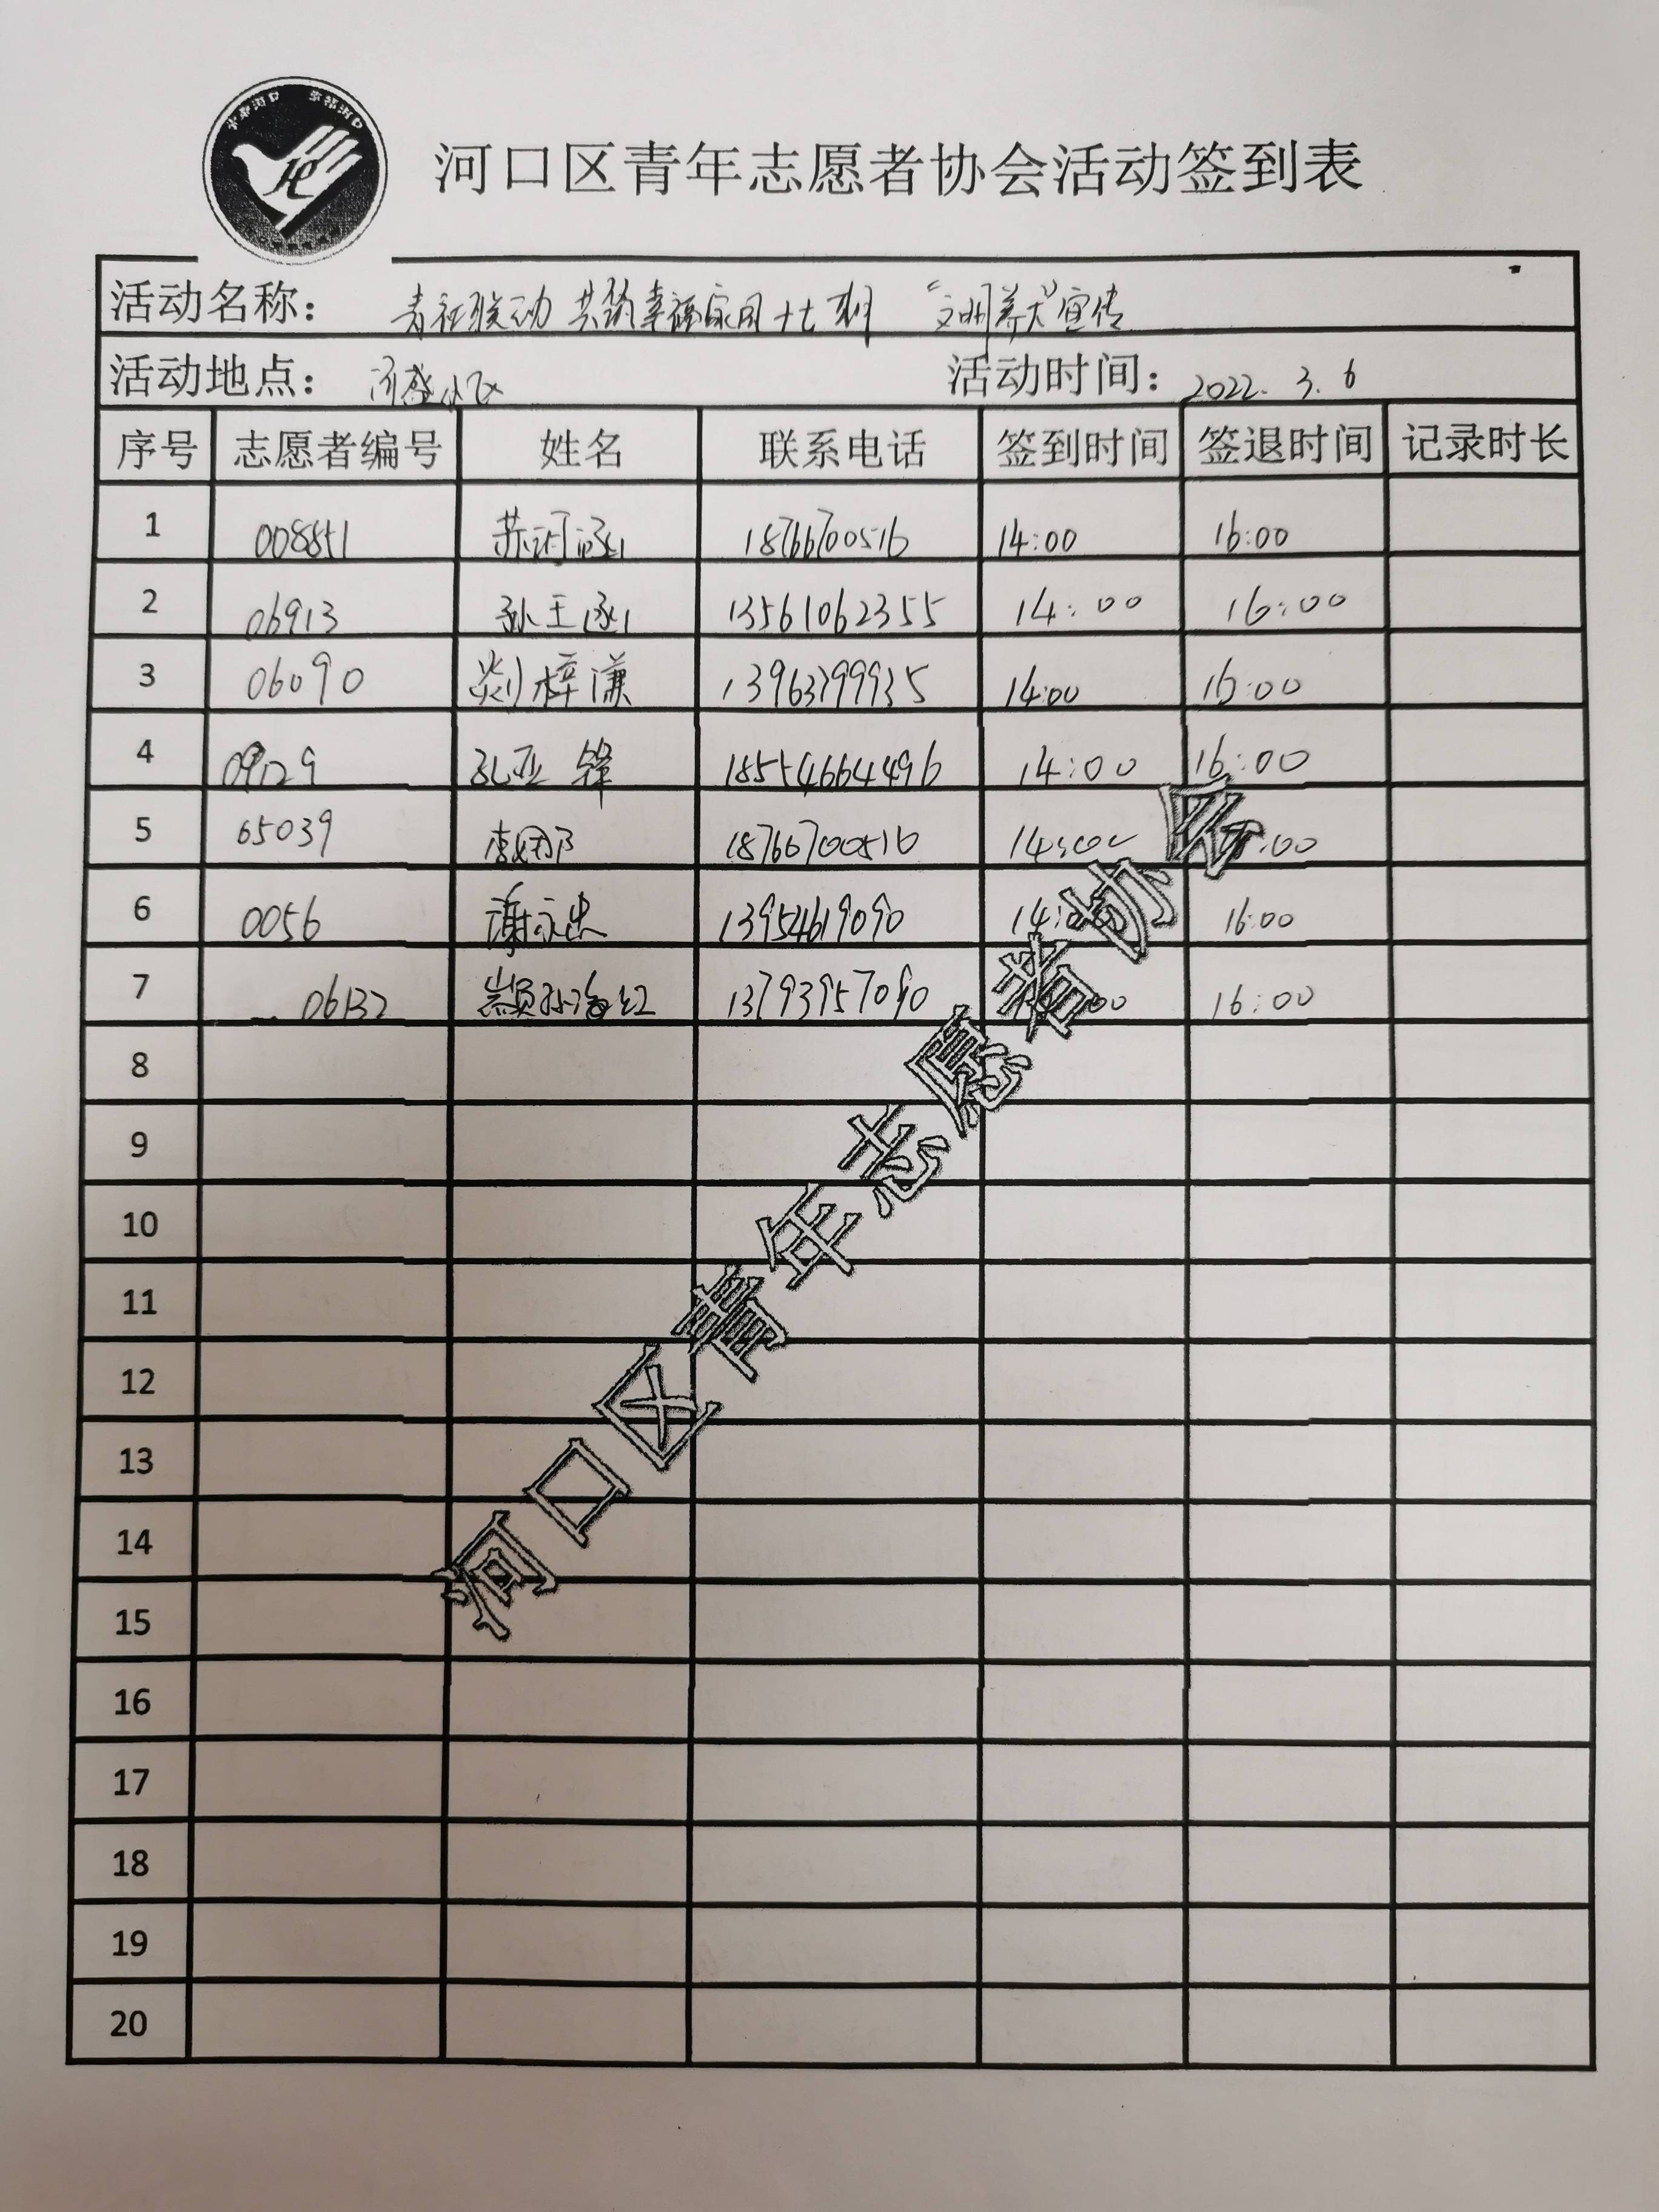 河口区青年志愿者协会活动签到表
活动名称： 青社联动 共筑幸福家园十七期 “文明养犬”宣传
活动地点： 河盛小区 活动时间：2022.3.6
序号 志愿者编号 姓名 联系电话 签到时间 签退时间 记录时长
1 008851 苏诃涵 18766700516 14:00 16:00
2 06913 孙王涵 13561062355 14:00 16:00
3 06090 刘梓谦 13963799935 14:00 16:00
4 09129 孔亚锋 18554664496 14:00 16:00
5 65039 李娜 18766700516 14:00 :00
6 0056 谢永忠 13954619090 14:00 16:00
7 06132 颛孙海红 13793957090 :00 16:00
8
9
10
11
12
13
14
15
16
17
18
19
20
河口区青年志愿者协会